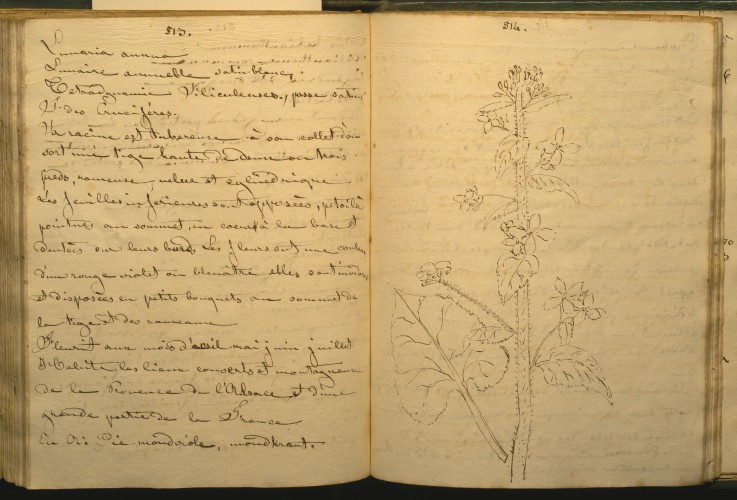 513.
Lunaria annua
Lunaire annuelle satin blanc,
Tetradynamie Siliculeuses, passe satin
F. des Crucifères.
Sa racine est tubereuse à son collet d'où
sort une tige haute de deux ou trois
pieds, rameuse, velue et cylindrique
Les feuilles inferieures sont opposées, petiolé
pointues au sommet, en coeur à la base et
dentées sur leurs bords, Les fleurs ont une couleur
d'un rouge violet ou bleuâtre elles sont inodores
et disposées en petits bouquets au sommet de
la tige et des rameaux
Fleurit aux mois d'avril mai juin juillet
Habite les lieux couverts et montagneux
de la Provence de l'Alsace et d'une
grande partie de la France
En
514.